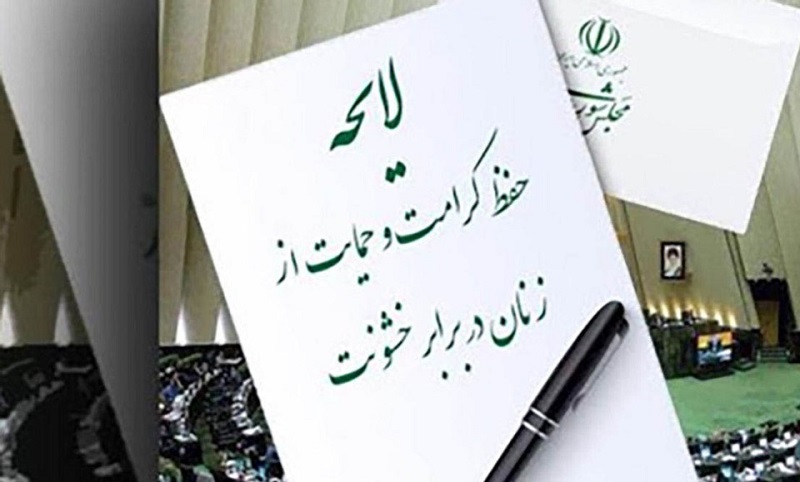 لایحه
حفظ کرامت و حمایت از
زنان در برابر خشونت
جمهوری اسلامی ایران
مجلس شورای